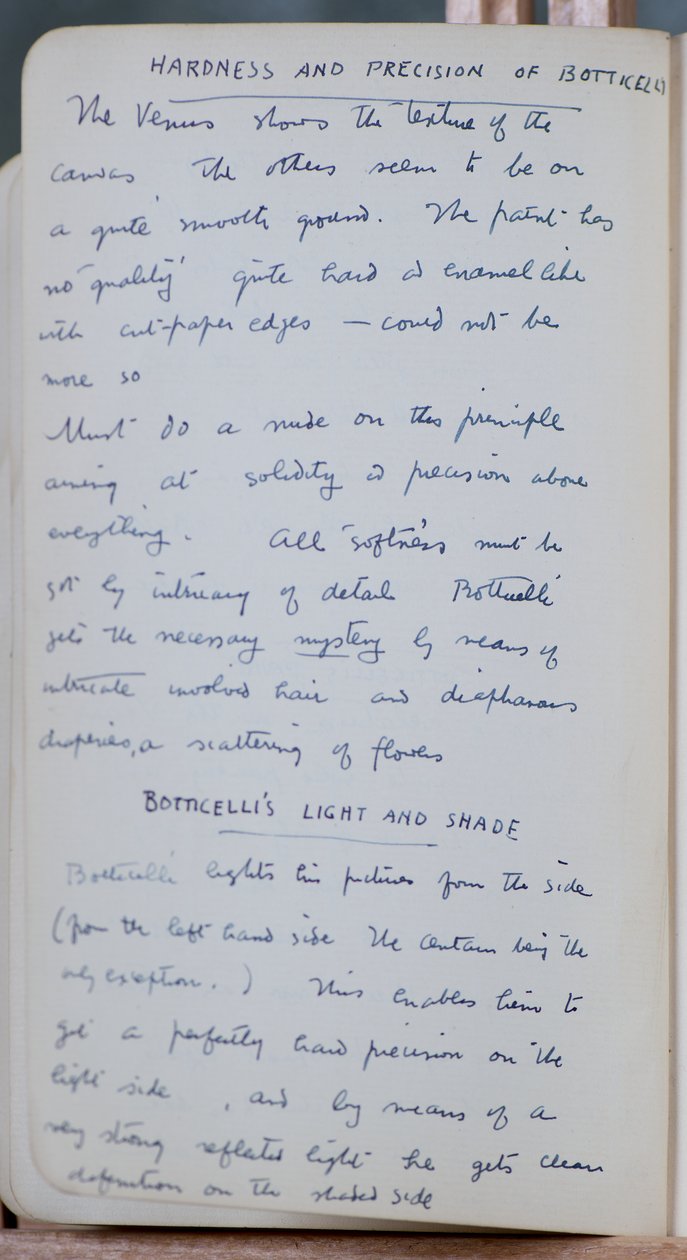 HARDNESS AND PRECISION OF BOTTICELLI
The Venus shows the texture of the
canvas The others seem to be on
a quite smooth ground. The paint has
no 'quality' quite hard & enamel like
with cut-paper edges — could not be
more so
Must do a nude on this principle
aiming at solidity & precision above
everything. All softness must be
got by intricacy of detail Botticelli
gets the necessary mystery by means of
intricate involved hair and diaphanous
draperies, a scattering of flowers
BOTTICELLI'S LIGHT AND SHADE
Botticelli lights his pictures from the side
(from the left hand side The centaur being the
only exception.) This enables him to
get a perfectly hard precision on the
light side, and by means of a
very strong reflected light he gets clean
definition on the shaded side